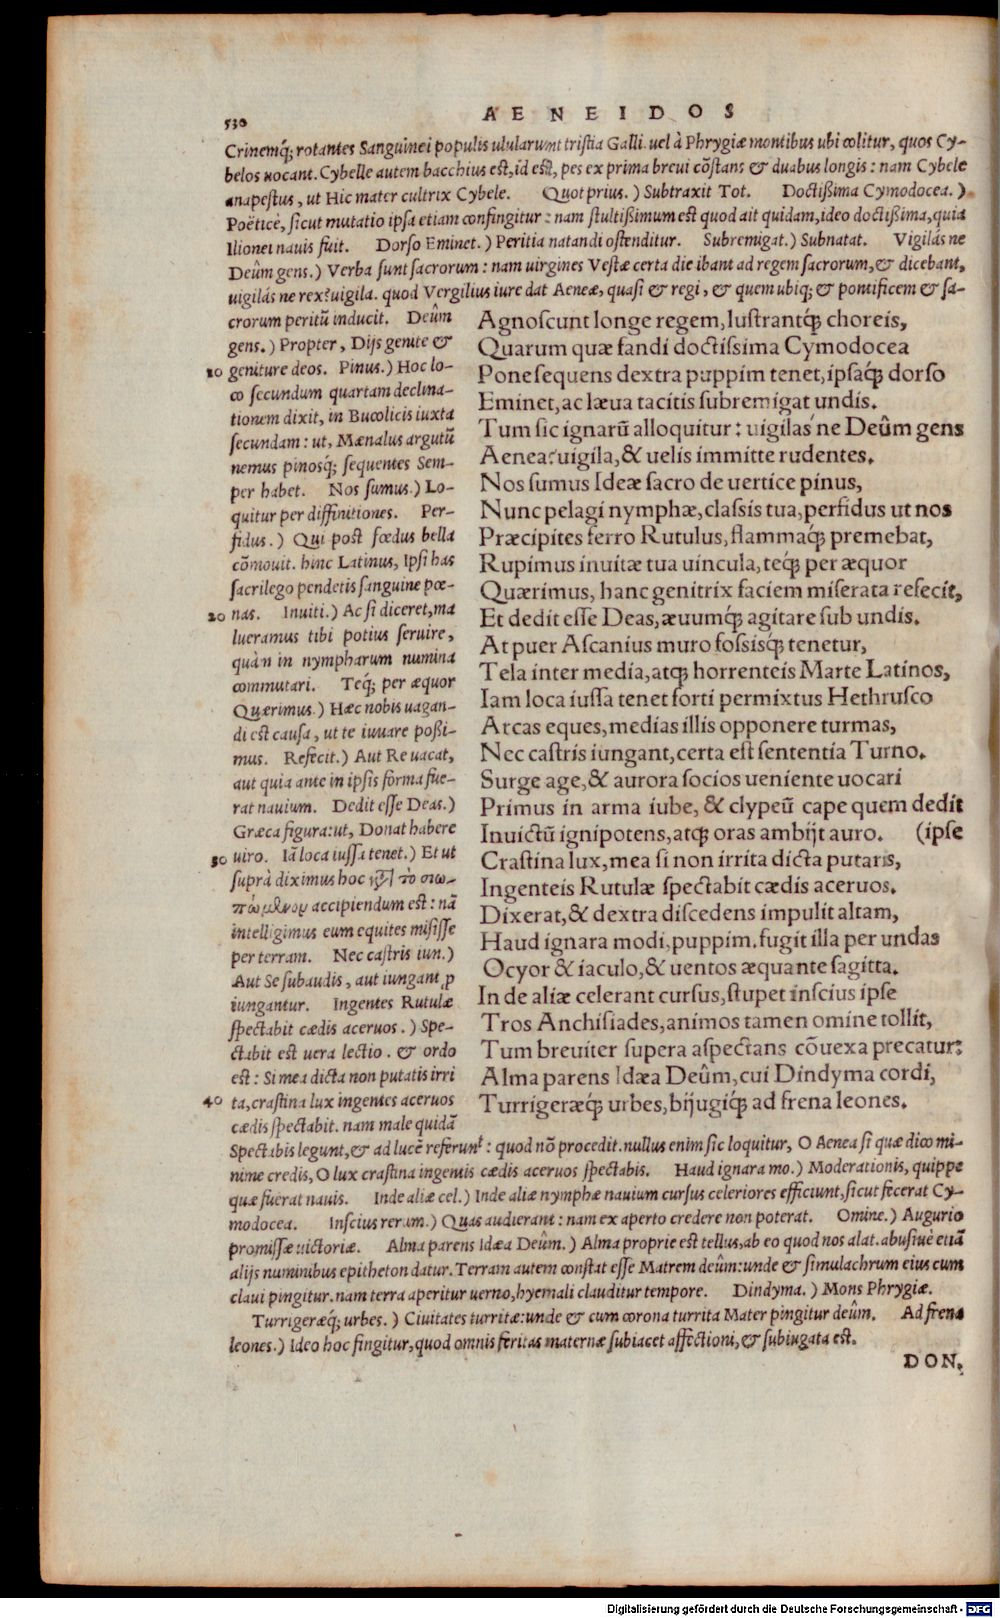 530
AENEIDOS
Crinemq́; rotantes Sanguinei populis ulularunt tristia Galli. uel à Phrygiæ montibus ubi colitur, quos Cy-
belos uocant. Cybelle autem bacchius est, id est, pes ex prima breui cõstans & duabus longis: nam Cybele
anapestus, ut Hic mater cultrix Cybele. Quot prius.) Subtraxit Tot. Doctißima Cymodocea.)
Poëticè, sicut mutatio ipsa etiam confingitur: nam stultißimum est quod ait quidam, ideo doctißima, quia
Ilionei nauis fuit. Dorso Eminet.) Peritia natandi ostenditur. Subremigat.) Subnatat. Vigilás ne
Deûm gens.) Verba sunt sacrorum: nam uirgines Vestæ certa die ibant ad regem sacrorum, & dicebant,
uigilás ne rex? uigila. quod Vergilius iure dat Aeneæ, quasi & regi, & quem ubiq; & pontificem & sa-
crorum peritũ inducit. Deûm
gens.) Propter, Dijs genite &
10 geniture deos. Pinus.) Hoc lo-
co secundum quartam declina-
tionem dixit, in Bucolicis iuxta
secundam: ut, Mænalus argutũ
nemus pinosq́; sequentes Sem-
per habet. Nos sumus.) Lo-
quitur per diffinitiones. Per-
fidus.) Qui post fœdus bella
cõmouit. hinc Latinus, Ipsi has
sacrilego pendetis sanguine pœ-
20 nas. Inuiti.) Ac si diceret, ma
lueramus tibi potius seruire,
quàm in nympharum numina
commutari. Teq́; per æquor
Quærimus.) Hæc nobis uagan-
di est causa, ut te iuuare poßi-
mus. Refecit.) Aut Re uacat,
aut quia ante in ipsis forma fue-
rat nauium. Dedit esse Deas.)
Græca figura: ut, Donat habere
30 uiro. Iã loca iussa tenet.) Et ut
suprà diximus hoc τὸ σιω-
πώμενον accipiendum est: nã
intelligimus eum equites misisse
per terram. Nec castris iun.)
Aut Se subaudis, aut iungant, p
iungantur. Ingentes Rutulæ
spectabit cædis aceruos.) Spe-
ctabit est uera lectio. & ordo
est: Si mea dicta non putatis irri
40 ta, crastina lux ingentes aceruos
cædis spectabit. nam male quidã
Agnoscunt longe regem, lustrantq́; choreis,
Quarum quæ fandi doctissima Cymodocea
Pone sequens dextra puppim tenet, ipsaq́; dorso
Eminet, ac læua tacitis subremigat undis.
Tum sic ignarũ alloquitur: uigilas ne Deûm gens
Aenea? uigila, & uelis immitte rudentes.
Nos sumus Ideæ sacro de uertice pinus,
Nunc pelagi nymphæ, classis tua, perfidus ut nos
Præcipites ferro Rutulus, flammaq́; premebat,
Rupimus inuitæ tua uincula, teq́; per æquor
Quærimus, hanc genitrix faciem miserata refecit,
Et dedit esse Deas, æuumq́; agitare sub undis.
At puer Ascanius muro fossisq́; tenetur,
Tela inter media, atq; horrenteis Marte Latinos,
Iam loca iussa tenet forti permixtus Hethrusco
Arcas eques, medias illis opponere turmas,
Nec castris iungant, certa est sententia Turno.
Surge age, & aurora socios ueniente uocari
Primus in arma iube, & clypeũ cape quem dedit
Inuictũ ignipotens, atq; oras ambijt auro. (ipse
Crastina lux, mea si non irrita dicta putaris,
Ingenteis Rutulæ spectabit cædis aceruos.
Dixerat, & dextra discedens impulit altam,
Haud ignara modi, puppim. fugit illa per undas
Ocyor & iaculo, & uentos æquante sagitta.
In de aliæ celerant cursus, stupet inscius ipse
Tros Anchisiades, animos tamen omine tollit,
Tum breuiter supera aspectans cõuexa precatur:
Alma parens Idæa Deûm, cui Dindyma cordi,
Turrigeræq́; urbes, bijugiq́; ad frena leones.
Spectabis legunt, & ad lucẽ referunt: quod nõ procedit. nullus enim sic loquitur, O Aenea si quæ dico mi-
nime credis, O lux crastina ingentis cædis aceruos spectabis. Haud ignara mo.) Moderationis, quippe
quæ fuerat nauis. Inde aliæ cel.) Inde aliæ nymphæ nauium cursus celeriores efficiunt, sicut fecerat Cy-
modocea. Inscius rerum.) Quas audierant: nam ex aperto credere non poterat. Omine.) Augurio
promissæ uictoriæ. Alma parens Idæa Deûm.) Alma proprie est tellus, ab eo quod nos alat. abusiuè etiã
alijs numinibus epitheton datur. Terram autem constat esse Matrem deûm: unde & simulachrum eius cum
claui pingitur. nam terra aperitur uerno, hyemali clauditur tempore. Dindyma.) Mons Phrygiæ.
Turrigeræq́; urbes.) Ciuitates turritæ: unde & cum corona turrita Mater pingitur deûm. Ad frena
leones.) Ideo hoc fingitur, quod omnis feritas maternæ subiacet affectioni, & subiugata est.
DON.
Digitalisierung gefördert durch die Deutsche Forschungsgemeinschaft - DFG